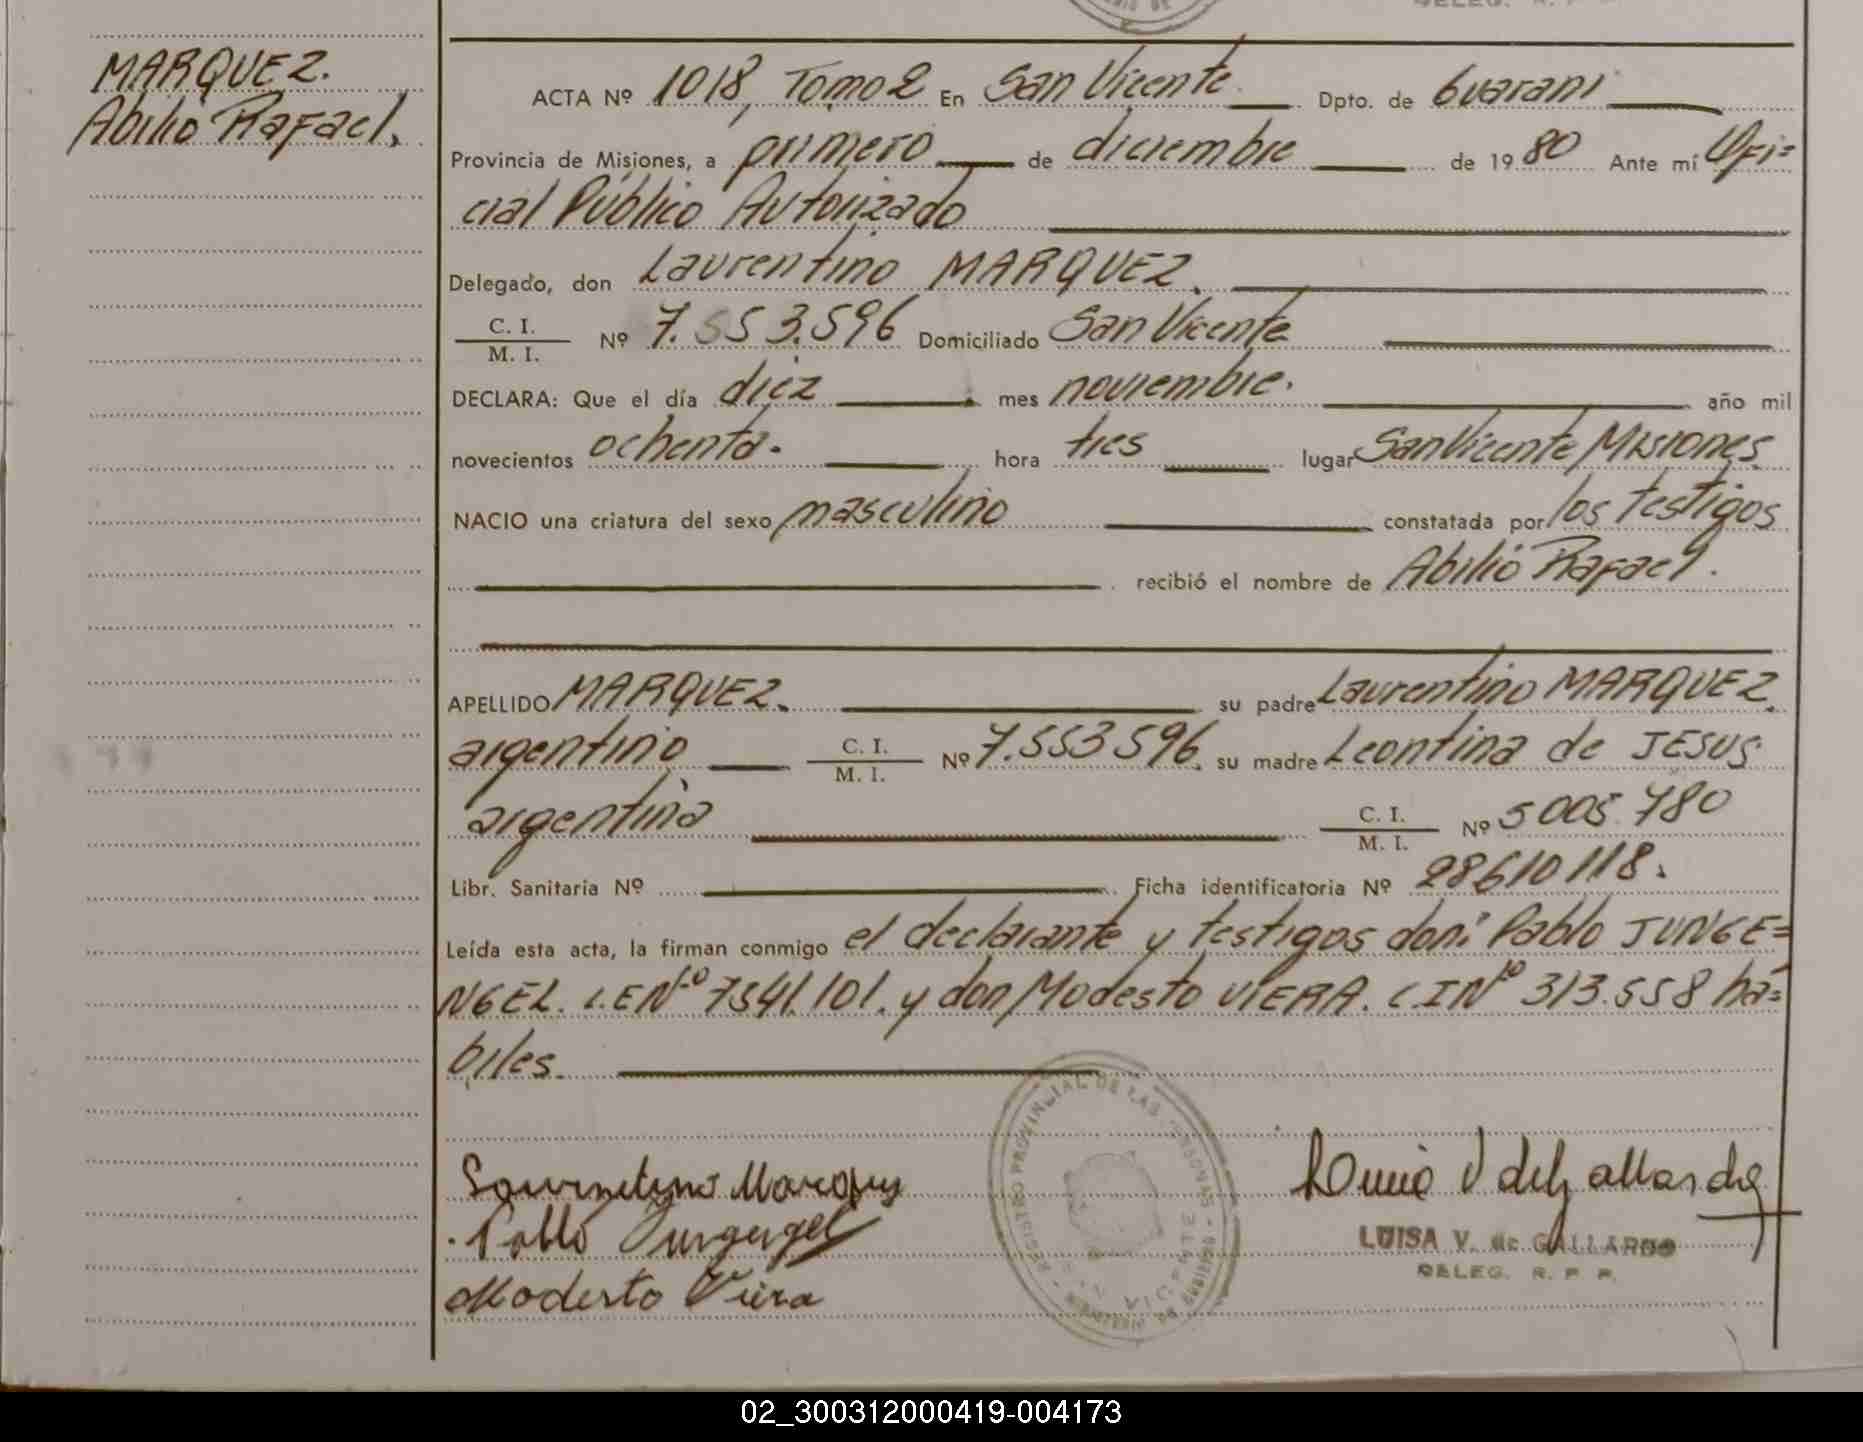 DELEG. R. P. P.
MARQUEZ.
Abilio Rafael.
ACTA Nº 1018, Tomo 2 En San Vicente Dpto. de Guarani
Provincia de Misiones, a primero de diciembre de 1980 Ante mí Ofi=
cial Público Autorizado
Delegado, don Laurentino MARQUEZ.
C. I.
M. I. Nº 7.553.596 Domiciliado San Vicente
DECLARA: Que el día diez mes noviembre. año mil
novecientos ochenta. hora tres lugar San Vicente Misiones.
NACIO una criatura del sexo masculino constatada por los testigos
recibió el nombre de Abilio Rafael.
APELLIDO MARQUEZ. su padre Laurentino MARQUEZ.
argentino C. I.
M. I. Nº 7.553596. su madre Leontina de JESUS
argentina C. I.
M. I. Nº 5005.780
Libr. Sanitaria Nº Ficha identificatoria Nº 28610118.
Leída esta acta, la firman conmigo el declarante y testigos don: Pablo JUNGE=
NGEL. L.E Nº 7541.101. y don Modesto VIERA. C.I Nº 313.558 há=
biles.
Laurentino Marques
Pablo Jungengel
Modesto Viera
REGISTRO PROVINCIAL DE LAS PERSONAS
MINISTERIO DE GOBIERNO
S. VICENTE
Luisa V de Gallardo
LUISA V. de GALLARDO
DELEG. R. P. P.
02_300312000419-004173